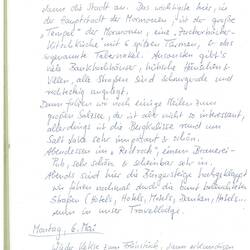 dann die Stadt an. Das wichtigste hier, in
der Hauptstadt der Mormonen, ist der große
„Tempel" der Mormonen, eine „Zuckerbäcker-
Kitschkirche" mit 6 spitzen Türmen, & das
sogenannte Tabernakel. Ausserdem gibt's
viele Bankhochhäuser, hübsche Häuschen &
Villen, alle Straßen sind schnurgrade und
rechteckig angelegt.
Dann fahren wir noch einige Meilen zum
großen Salzsee, der ist aber nicht so interessant,
allerdings ist die Bergkulisse rund um
Salt Lake sehr imposant & schön.
Abendessen im „Red Rock", einem Brauerei-
Pub, sehr schön & scheinbar sehr in.
Abends sind hier die Bürgersteige hochgeklappt
wir fahren nochmal durch die bunt beleuchteten
Straßen (Hotels, Motels, Banken, Hotels...
nun in unser Travellodge.
Montag, 6. Mai
Wieder Kekse zum Frühstück, dann